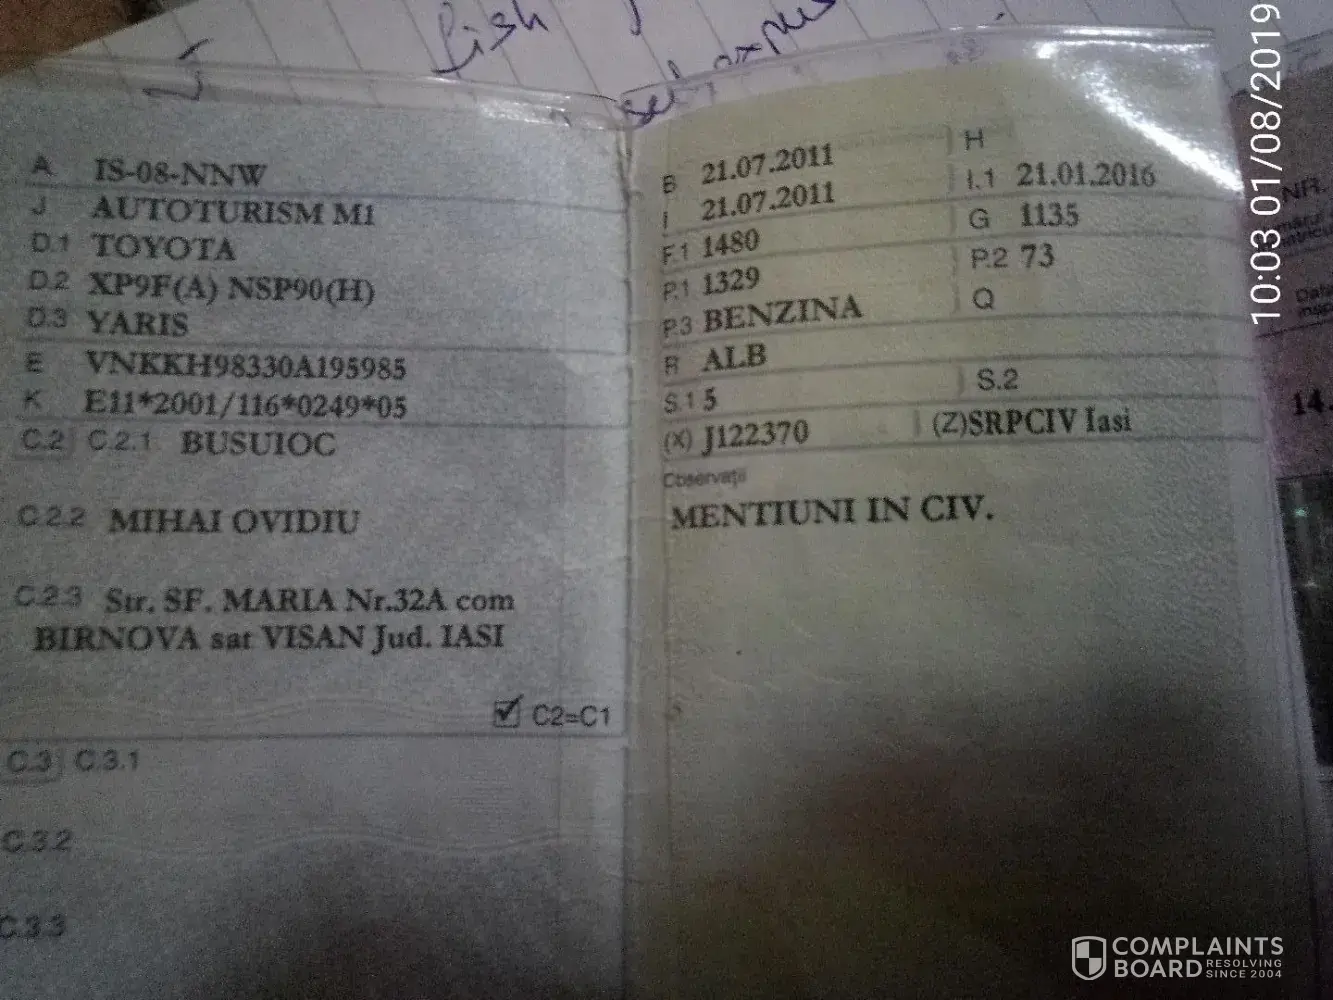 Fish
sel expres
10:03 01/08/2019
A IS-08-NNW
J AUTOTURISM M1
D.1 TOYOTA
D.2 XP9F(A) NSP90(H)
D.3 YARIS
E VNKKH98330A195985
K E11*2001/116*0249*05
C.2 C.2.1 BUSUIOC
C.2.2 MIHAI OVIDIU
C.2.3 Str. SF. MARIA Nr.32A com
BIRNOVA sat VISAN Jud. IASI
C2=C1
C.3 C.3.1
C.3.2
C.3.3
B 21.07.2011 H
I 21.07.2011 I.1 21.01.2016
F.1 1480 G 1135
P.1 1329 P.2 73
P.3 BENZINA Q
R ALB
S.1 5 S.2
(X) J122370 (Z)SRPCIV Iasi
Observații
MENTIUNI IN CIV.
NR.
14.
COMPLAINTS
BOARD RESOLVING
SINCE 2004